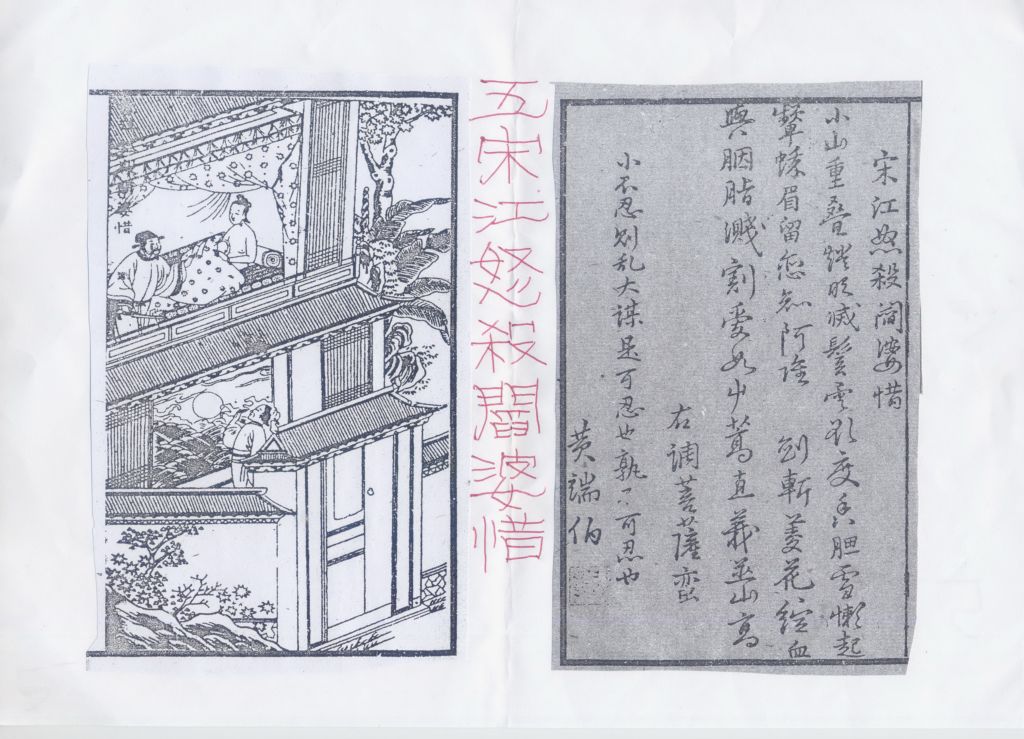 宋江怒殺閻婆惜
小山重疊 明滅鬢雲欲度香腮雪懶起
顰蛾眉留 知阿誰 劍斬菱花綻血
與胭脂濺割愛如 直義並山高
右調菩薩蠻
小不忍則乱大謀是可忍也孰不可忍也
黄端伯
五宋江怒殺閻婆惜
婆惜